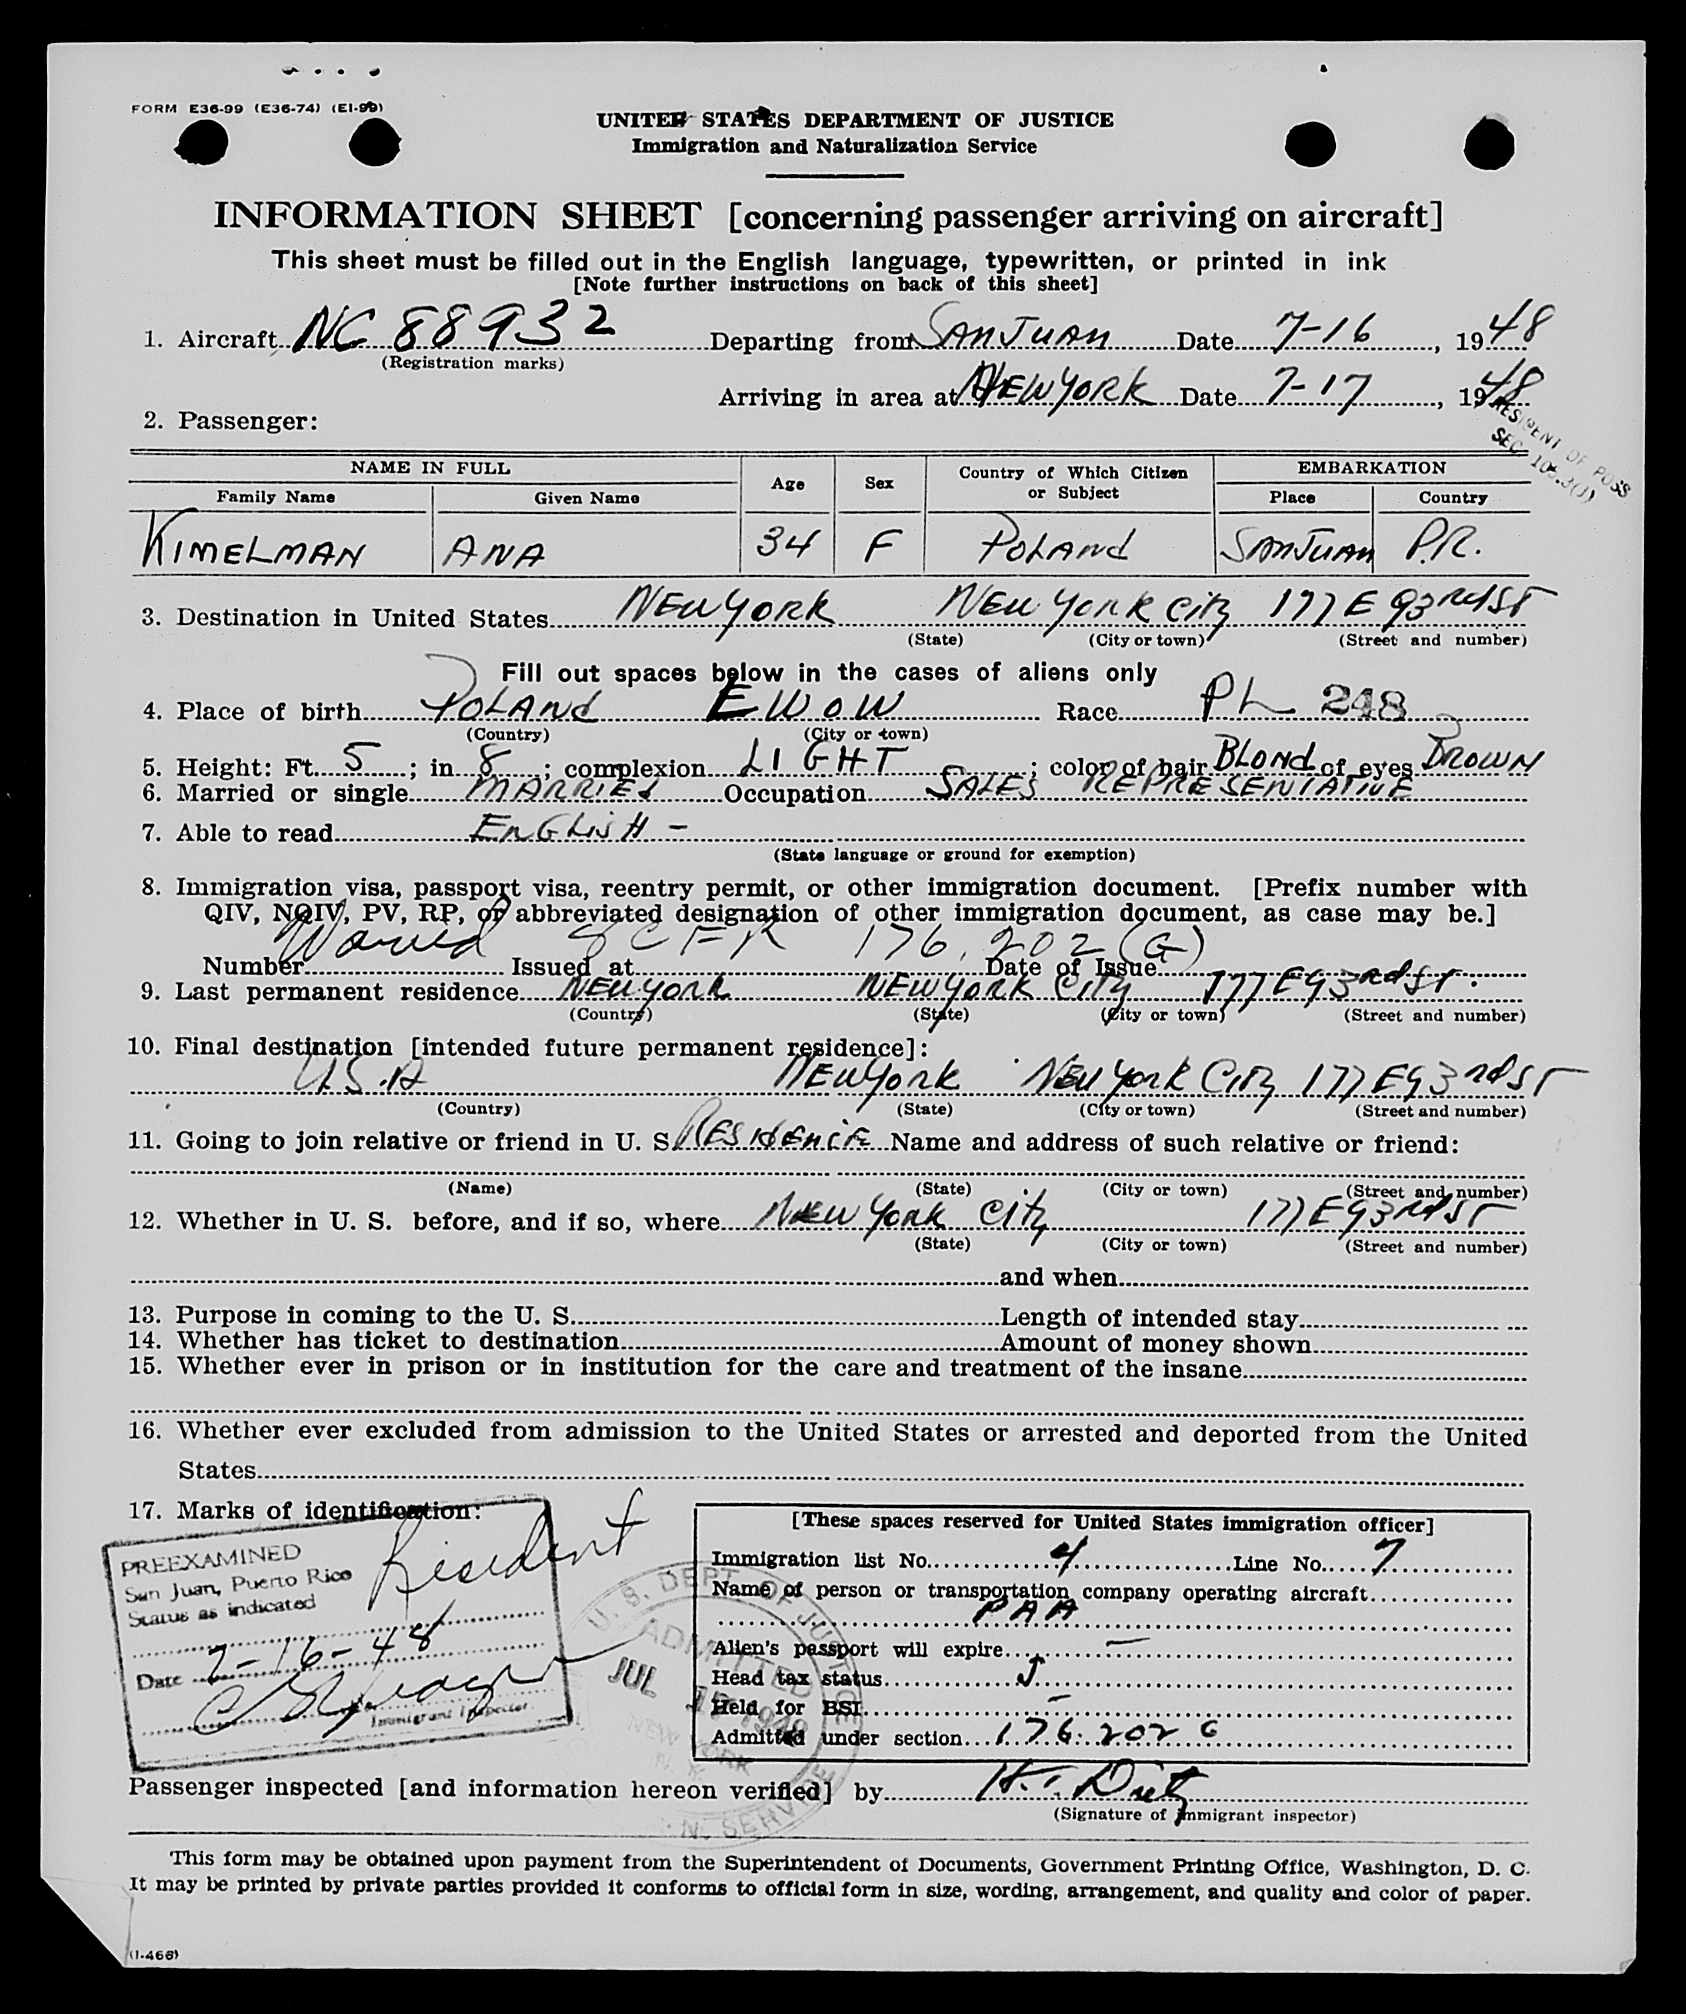 FORM E36-99 (E36-74) (EI-99)
UNITED STATES DEPARTMENT OF JUSTICE
Immigration and Naturalization Service
INFORMATION SHEET [concerning passenger arriving on aircraft]
This sheet must be filled out in the English language, typewritten, or printed in ink
[Note further instructions on back of this sheet]
1. Aircraft NC 88932 Departing from SAN JUAN Date 7-16, 1948
(Registration marks)
Arriving in area at NEW YORK Date 7-17, 1948
RESIDENT OF POSS
SEC. 106.3(J)
2. Passenger:
NAME IN FULL Age Sex Country of Which Citizen or Subject EMBARKATION
Family Name Given Name Place Country
KIMELMAN ANA 34 F POLAND SAN JUAN P.R.
3. Destination in United States NEW YORK NEW YORK CITY 177 E 93rd ST
(State) (City or town) (Street and number)
Fill out spaces below in the cases of aliens only
4. Place of birth POLAND EWOW Race PL 248
(Country) (City or town)
5. Height: Ft. 5; in. 8; complexion LIGHT; color of hair BLOND of eyes BROWN
6. Married or single MARRIED Occupation SALES REPRESENTATIVE
7. Able to read ENGLISH -
(State language or ground for exemption)
8. Immigration visa, passport visa, reentry permit, or other immigration document. [Prefix number with
QIV, NQIV, PV, RP, or abbreviated designation of other immigration document, as case may be.]
Waived 8 CFR 176.202 (G)
Number Issued at Date of Issue
9. Last permanent residence NEW YORK NEW YORK CITY 177 E 93rd ST.
(Country) (State) (City or town) (Street and number)
10. Final destination [intended future permanent residence]:
U.S.A NEW YORK NEW YORK CITY 177 E 93rd ST
(Country) (State) (City or town) (Street and number)
11. Going to join relative or friend in U. S. RESIDENCE Name and address of such relative or friend:
(Name) (State) (City or town) (Street and number)
12. Whether in U. S. before, and if so, where NEW YORK CITY 177 E 93rd ST
(State) (City or town) (Street and number)
and when
13. Purpose in coming to the U. S. Length of intended stay
14. Whether has ticket to destination Amount of money shown
15. Whether ever in prison or in institution for the care and treatment of the insane
16. Whether ever excluded from admission to the United States or arrested and deported from the United
States
17. Marks of identification:
PREEXAMINED
San Juan, Puerto Rico
Status as indicated
Resident
Date 7-16-48
Immigrant Inspector
U. S. DEPT. OF JUSTICE
ADMITTED
JUL 17 1948
NEW YORK
N. Y.
I. N. SERVICE
[These spaces reserved for United States immigration officer]
Immigration list No. 4 Line No. 7
Name of person or transportation company operating aircraft
PAA
Alien's passport will expire —
Head tax status J
Held for BSI —
Admitted under section 176.202 G
Passenger inspected [and information hereon verified] by H. T. Dietz
(Signature of immigrant inspector)
This form may be obtained upon payment from the Superintendent of Documents, Government Printing Office, Washington, D. C.
It may be printed by private parties provided it conforms to official form in size, wording, arrangement, and quality and color of paper.
(I-466)